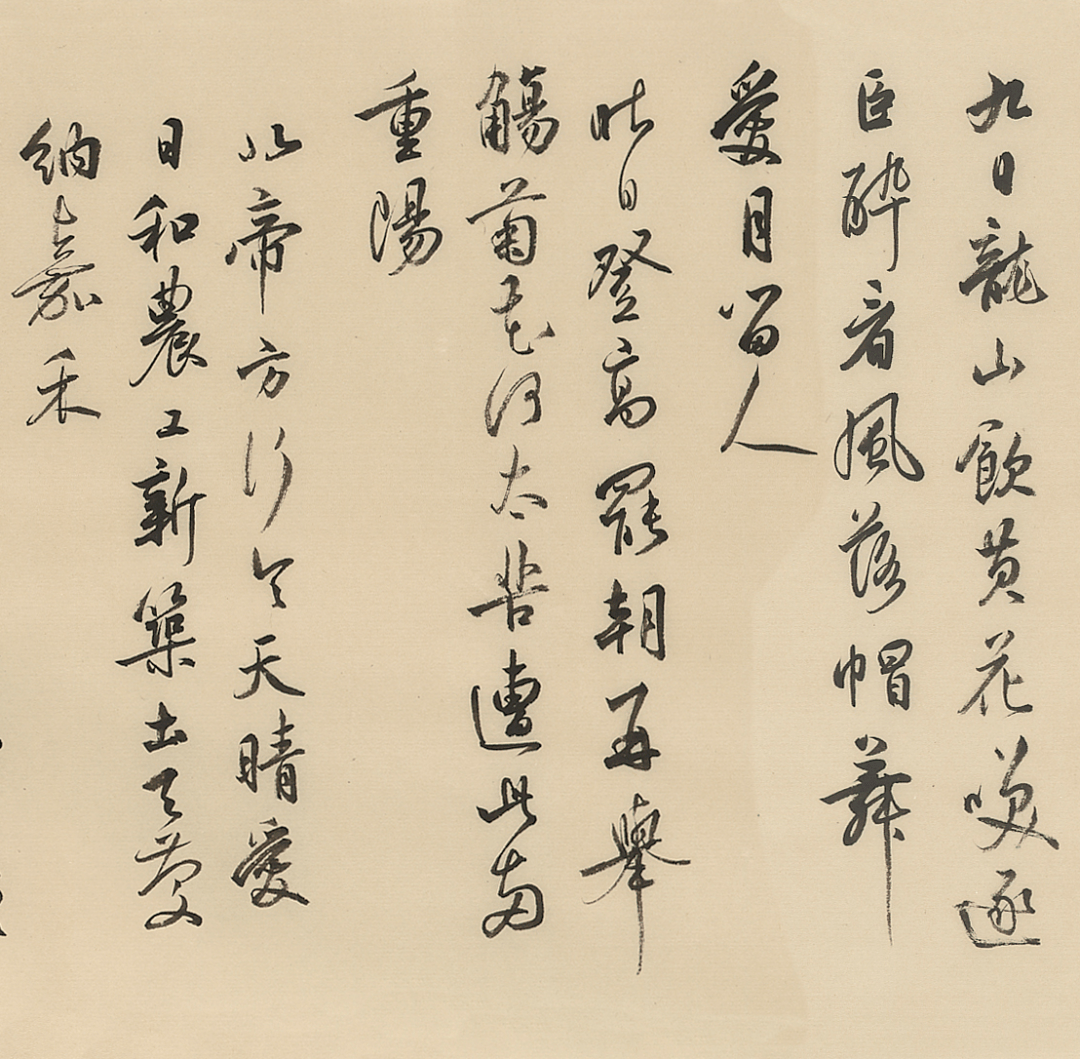 九日龍山飲黄花咲逐
臣醉看風落帽舞
愛月留人
昨日登高罷朝再舉
觴菊花何太苦遭此兩
重陽
北帝方行令天晴愛
日和農工新築土天慶
納嘉禾